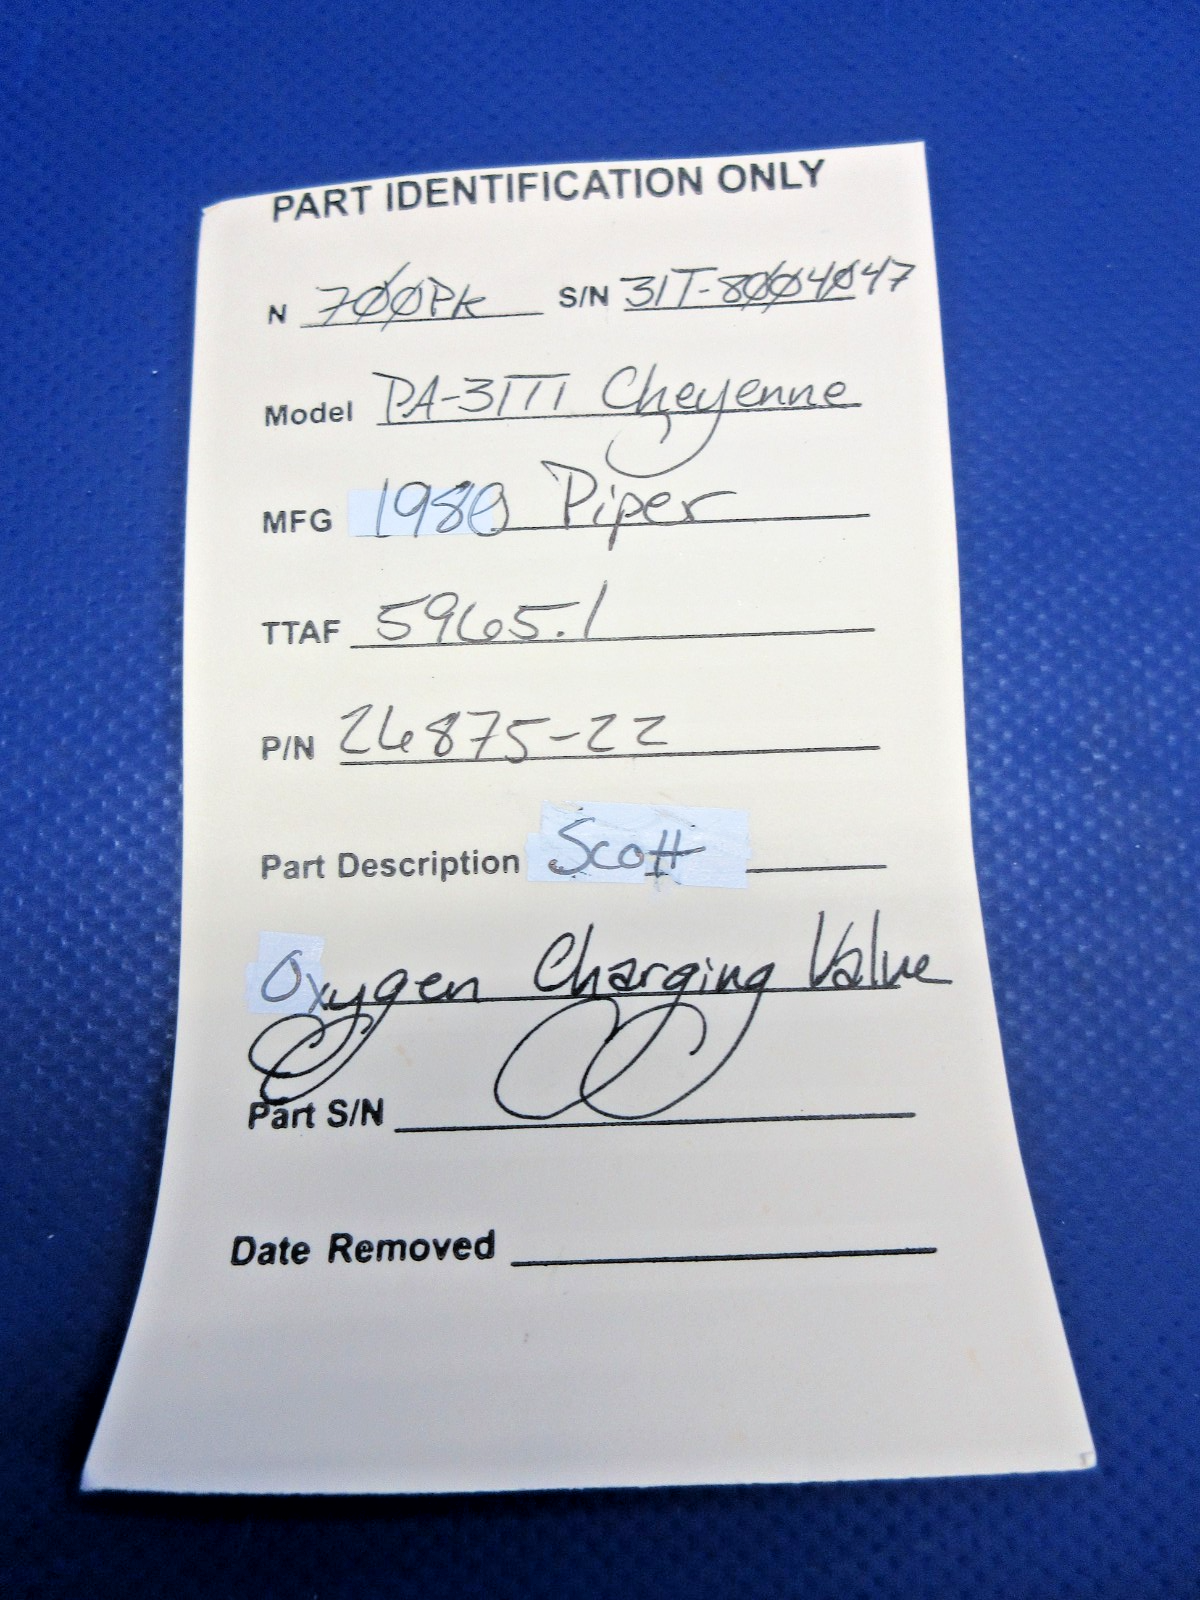 PART IDENTIFICATION ONLY
N 700PK S/N 31T-8004047
Model PA-31TI Cheyenne
MFG 1980 Piper
TTAF 5965.1
P/N 26875-22
Part Description Scott
Oxygen Charging Valve
Part S/N
Date Removed